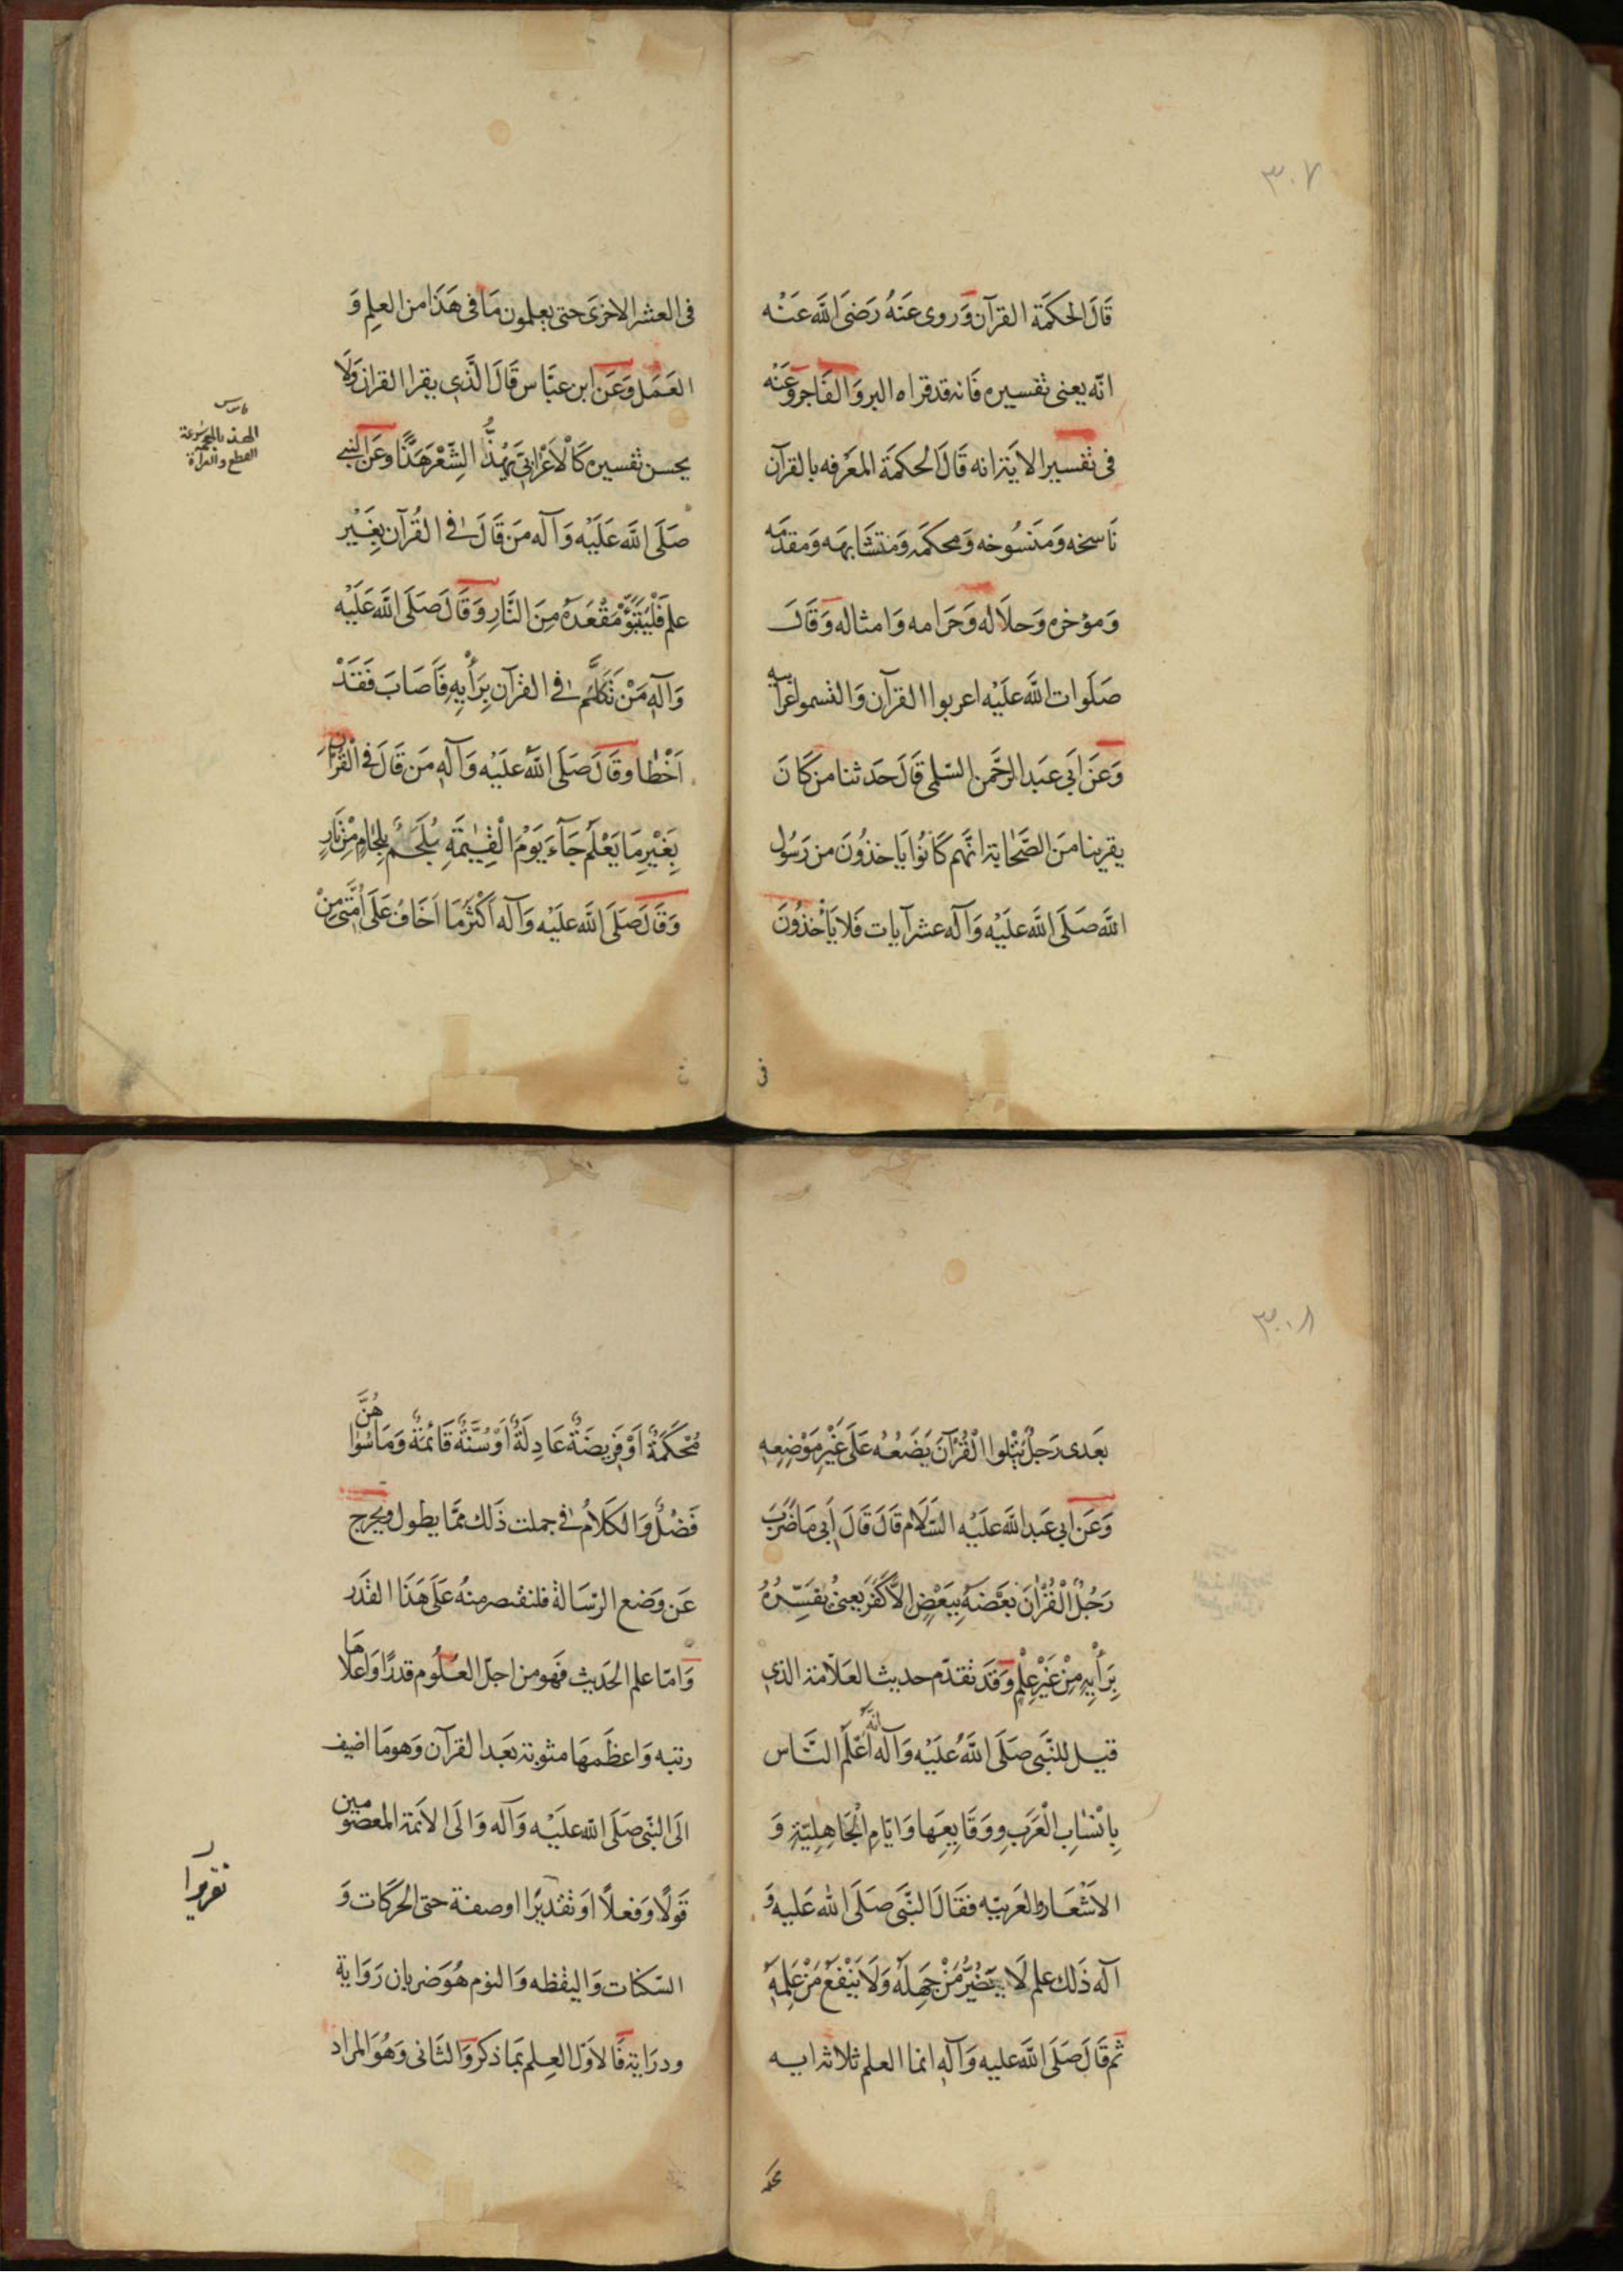 ٣٠٧
قَالَ الحَكمَة القرآن وَروى عَنهُ رَضىَ اللَّه عَنْه
انّه يعنى تفسيره فَانه قد قراه البر وَالفَاجر وَعَنه
فى تفسير الايَة انه قَالَ الحكمَة المعَرفه بالقرآن
نَاسخه وَمَنسُوخه وَمحكمَه وَمتشَابهَه وَمقدمَه
وَمؤخره وَحلاَله وَحَرامه وَامثاله وَقَالَ
صَلَوات اللَّه عليَه اعربوا القرآن وَالتمسوا غرايبه
وَعَن اَبى عبَد الرحَّمن السّلمى قَالَ حَدثنا من كَا نَ
يقرينا منَ الصَّحَابة انهَّم كَانوُا يَاخذوُنَ من رَسُول
اللَّه صَلَى اللَّه عليَه وَآله عشر آيات فَلا يَأخذُونَ
فى
فى العشر الاخرىَ حتى يعلمون مَا فى هَذَا من العلِم وَ
العَمَل وَعَن ابن عبَّاس قَالَ الَّذى يقرا القران وَلَا
يحسن تفسيره كَالْاَعْرابىّ يَهُذُّ الشِّعْر هَذًّا وعَن النبى
صَلَى اللَّه عَلَيْه وَآله مَن قَالَ فى القُرآن بِغَيْرِ
علم فَلْيَتَبَوَّء مَقْعَدَهُ مِنَ النَّارِ وَقَالَ صَلَى اللَّه عَلَيْه
وَآلِه مَنْ تَكَلَّم فى القرآن بِرَأيِهِ فَاَصَابَ فَقَدْ
اَخْطَا وقَالَ صَلَى اللَّه عليَه وَآلِه مَن قَالَ فى الْقُرْآن
بِغَيْرِ مَا يَعْلَم جَآءَ يَوْمَ الْقِيٰمَةِ مُلْجَمٌ بِلِجَامٍ مِنْ نَارٍ
وَقَالَ صَلَى اللَّه عليَه وَآله اَكْثَر مَا اَخَافُ عَلَى اُمَّتى مِنْ
الهذ بالمعجمة سُرعة
القطع والقراءة
٣٠٨
بعَدى رَجلٌ يَتْلوا الْقُرْآنَ يَضَعُهُ عَلَى غَيْرِ مَوْضِعِهِ
وَعَن ابى عَبد اللَّه عليَه السَّلَام قَالَ قَالَ اَبى مَا ضَرَبَ
رَجُلٌ الْقُرْاٰنَ بَعْضَهُ بِبَعْضٍ اِلاَّ كَفَرَ يعنى يفَسِّرُهُ
بِرَأيِهِ مِنْ غَيْرِ عِلْمٍ وَقَد تقدّم حديث العَلاّمة الذى
قيل للنَّبى صَلَى اللَّهُ عليَه وَآله انَّه اَعْلَم النَّاس
بِاَنْسٰابِ الْعَرَبِ وَوَقَايِعِهَا وَايّامِ الْجَاهِلِيّةِ وَ
الاَشْعَار وَالعَربيّه فقَالَ النَّبَى صَلَى اللّه عَليه وَ
آله ذَلك علم لَا يَضُرُّ مَنْ جَهِلَهُ وَلَا يَنْفَعُ مَنْ عَلِمَهُ
ثم قَالَ صَلَى اللَّه عليه وَآلِه انما العلم ثلاثه ايه
محكـ
مُحْكَمَةٌ اَوْ فَرِيضَةٌ عَادِلَةٌ اَوْ سُنَّةٌ قَائمَةٌ وَمَا سُوٰاهُنَّ
فَضْلٌ وَالكَلاَمُ فى جملت ذَلك ممَّا يطول وَيخرج
عَن وَضع الرّسَالة فلنقتصر منهُ عَلَى هَذَا القَدَر
وَامّا علم الحَديث فَهو من اجلّ العلُوم قدرًا وَاعلاهَا
رتبه وَاعظَمهَا مثوبَة بعَد القرآن وَهو مَا اضيف
الَى النبّى صَلَى اللّه عليَه وَآله وَالَى الاَئمة المعصومين
قَولًا وَفعلاً اوَ تقديرًا اوصفة حتى الحرَكَات وَ
السّكنات وَاليقظه وَالنوم هُوَ ضربان رَوَاية
ودرَاية فَالاوَل العِلم بمَا ذكر وَالثَانى وَهُوَ المراد
تقريرا